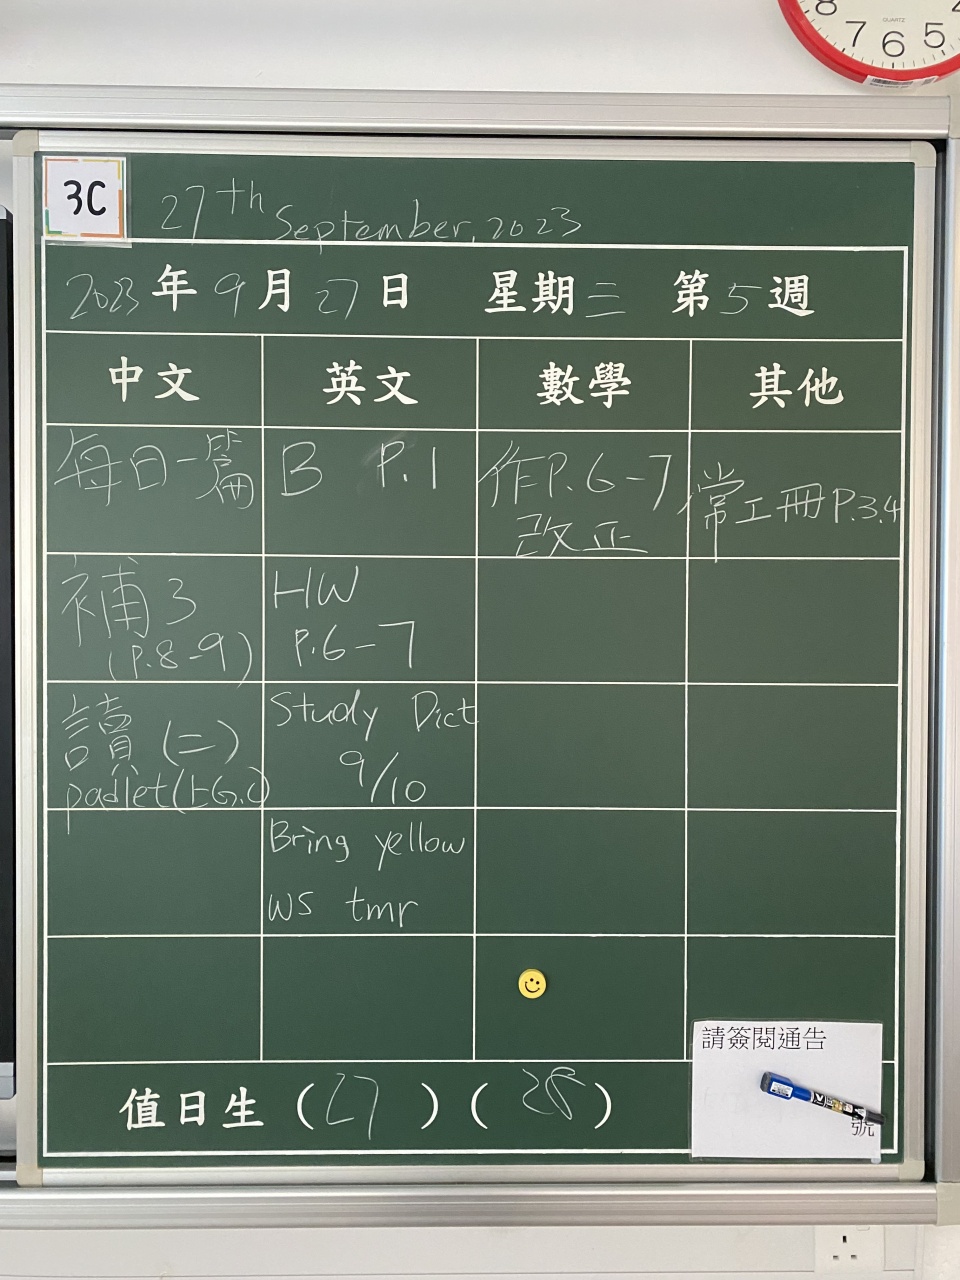 8 7 6 5 4
QUARTZ
3C
27th September, 2023
2023年9月27日 星期三 第5週
中文 英文 數學 其他
每日一篇
B P.1
作P.6-7
改正
常工冊P.3.4
補3
(P.8-9)
HW
P.6-7
讀(二)
padlet(上G.C)
Study Dict
9/10
Bring yellow
WS tmr
請簽閱通告
號
值日生(27)(28)